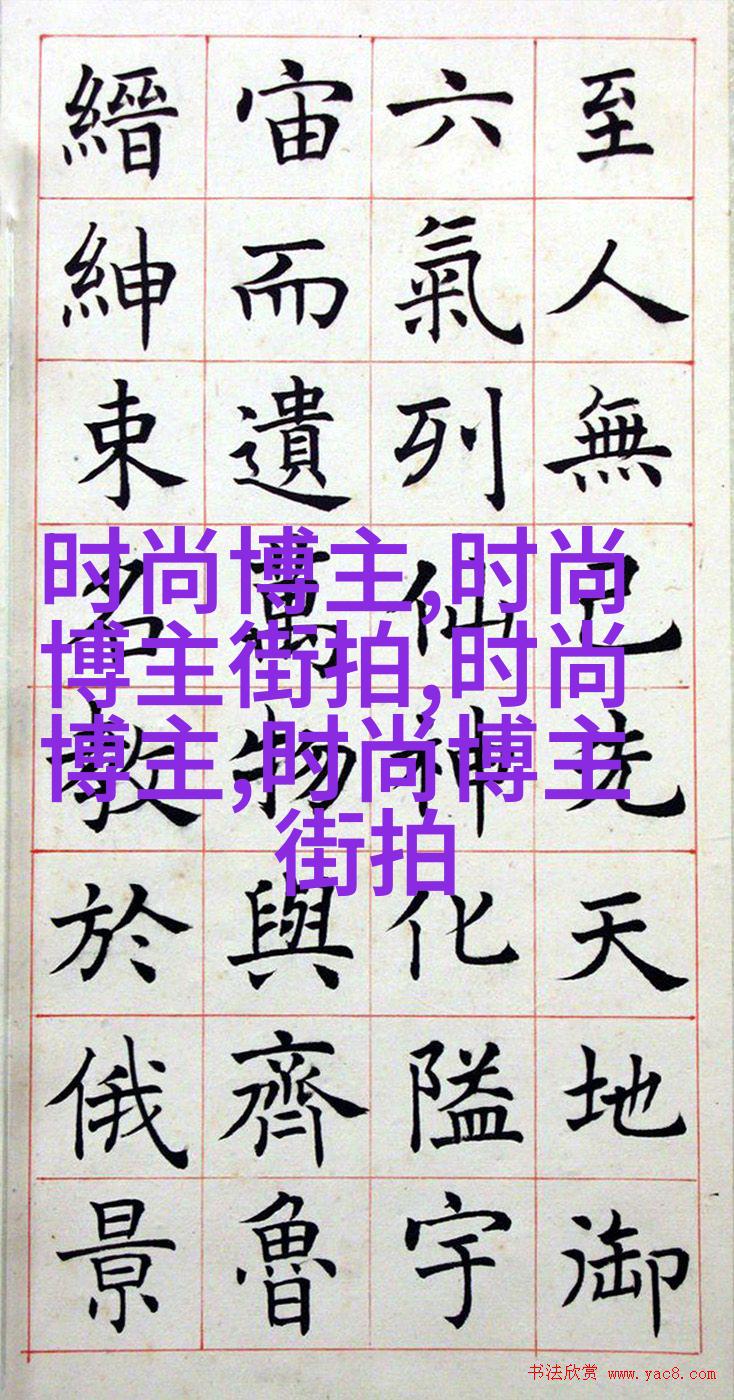 至人無己先天地御
六氣列仙神化隘宇
宙而遺萬物與齊魯
縉紳束名教於俄景
时尚博主,时尚
博主街拍,时尚
博主,时尚博主
街拍
书法欣赏 www.yac8.com